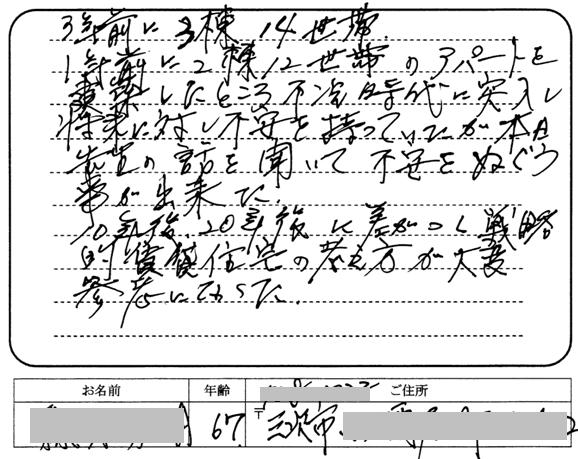 3年前に3棟14世帯.
1年前に2棟12世帯のアパートを
建築したところ不況時代に突入し
将来に対し不安を持っていたが本日
先生の話を聞いて不安をぬぐう
事が出来た.
10年後.20年後に差がつく戦略
的賃貸住宅の考え方が大変
参考になった.
お名前 年齢 ご住所
67. 〒